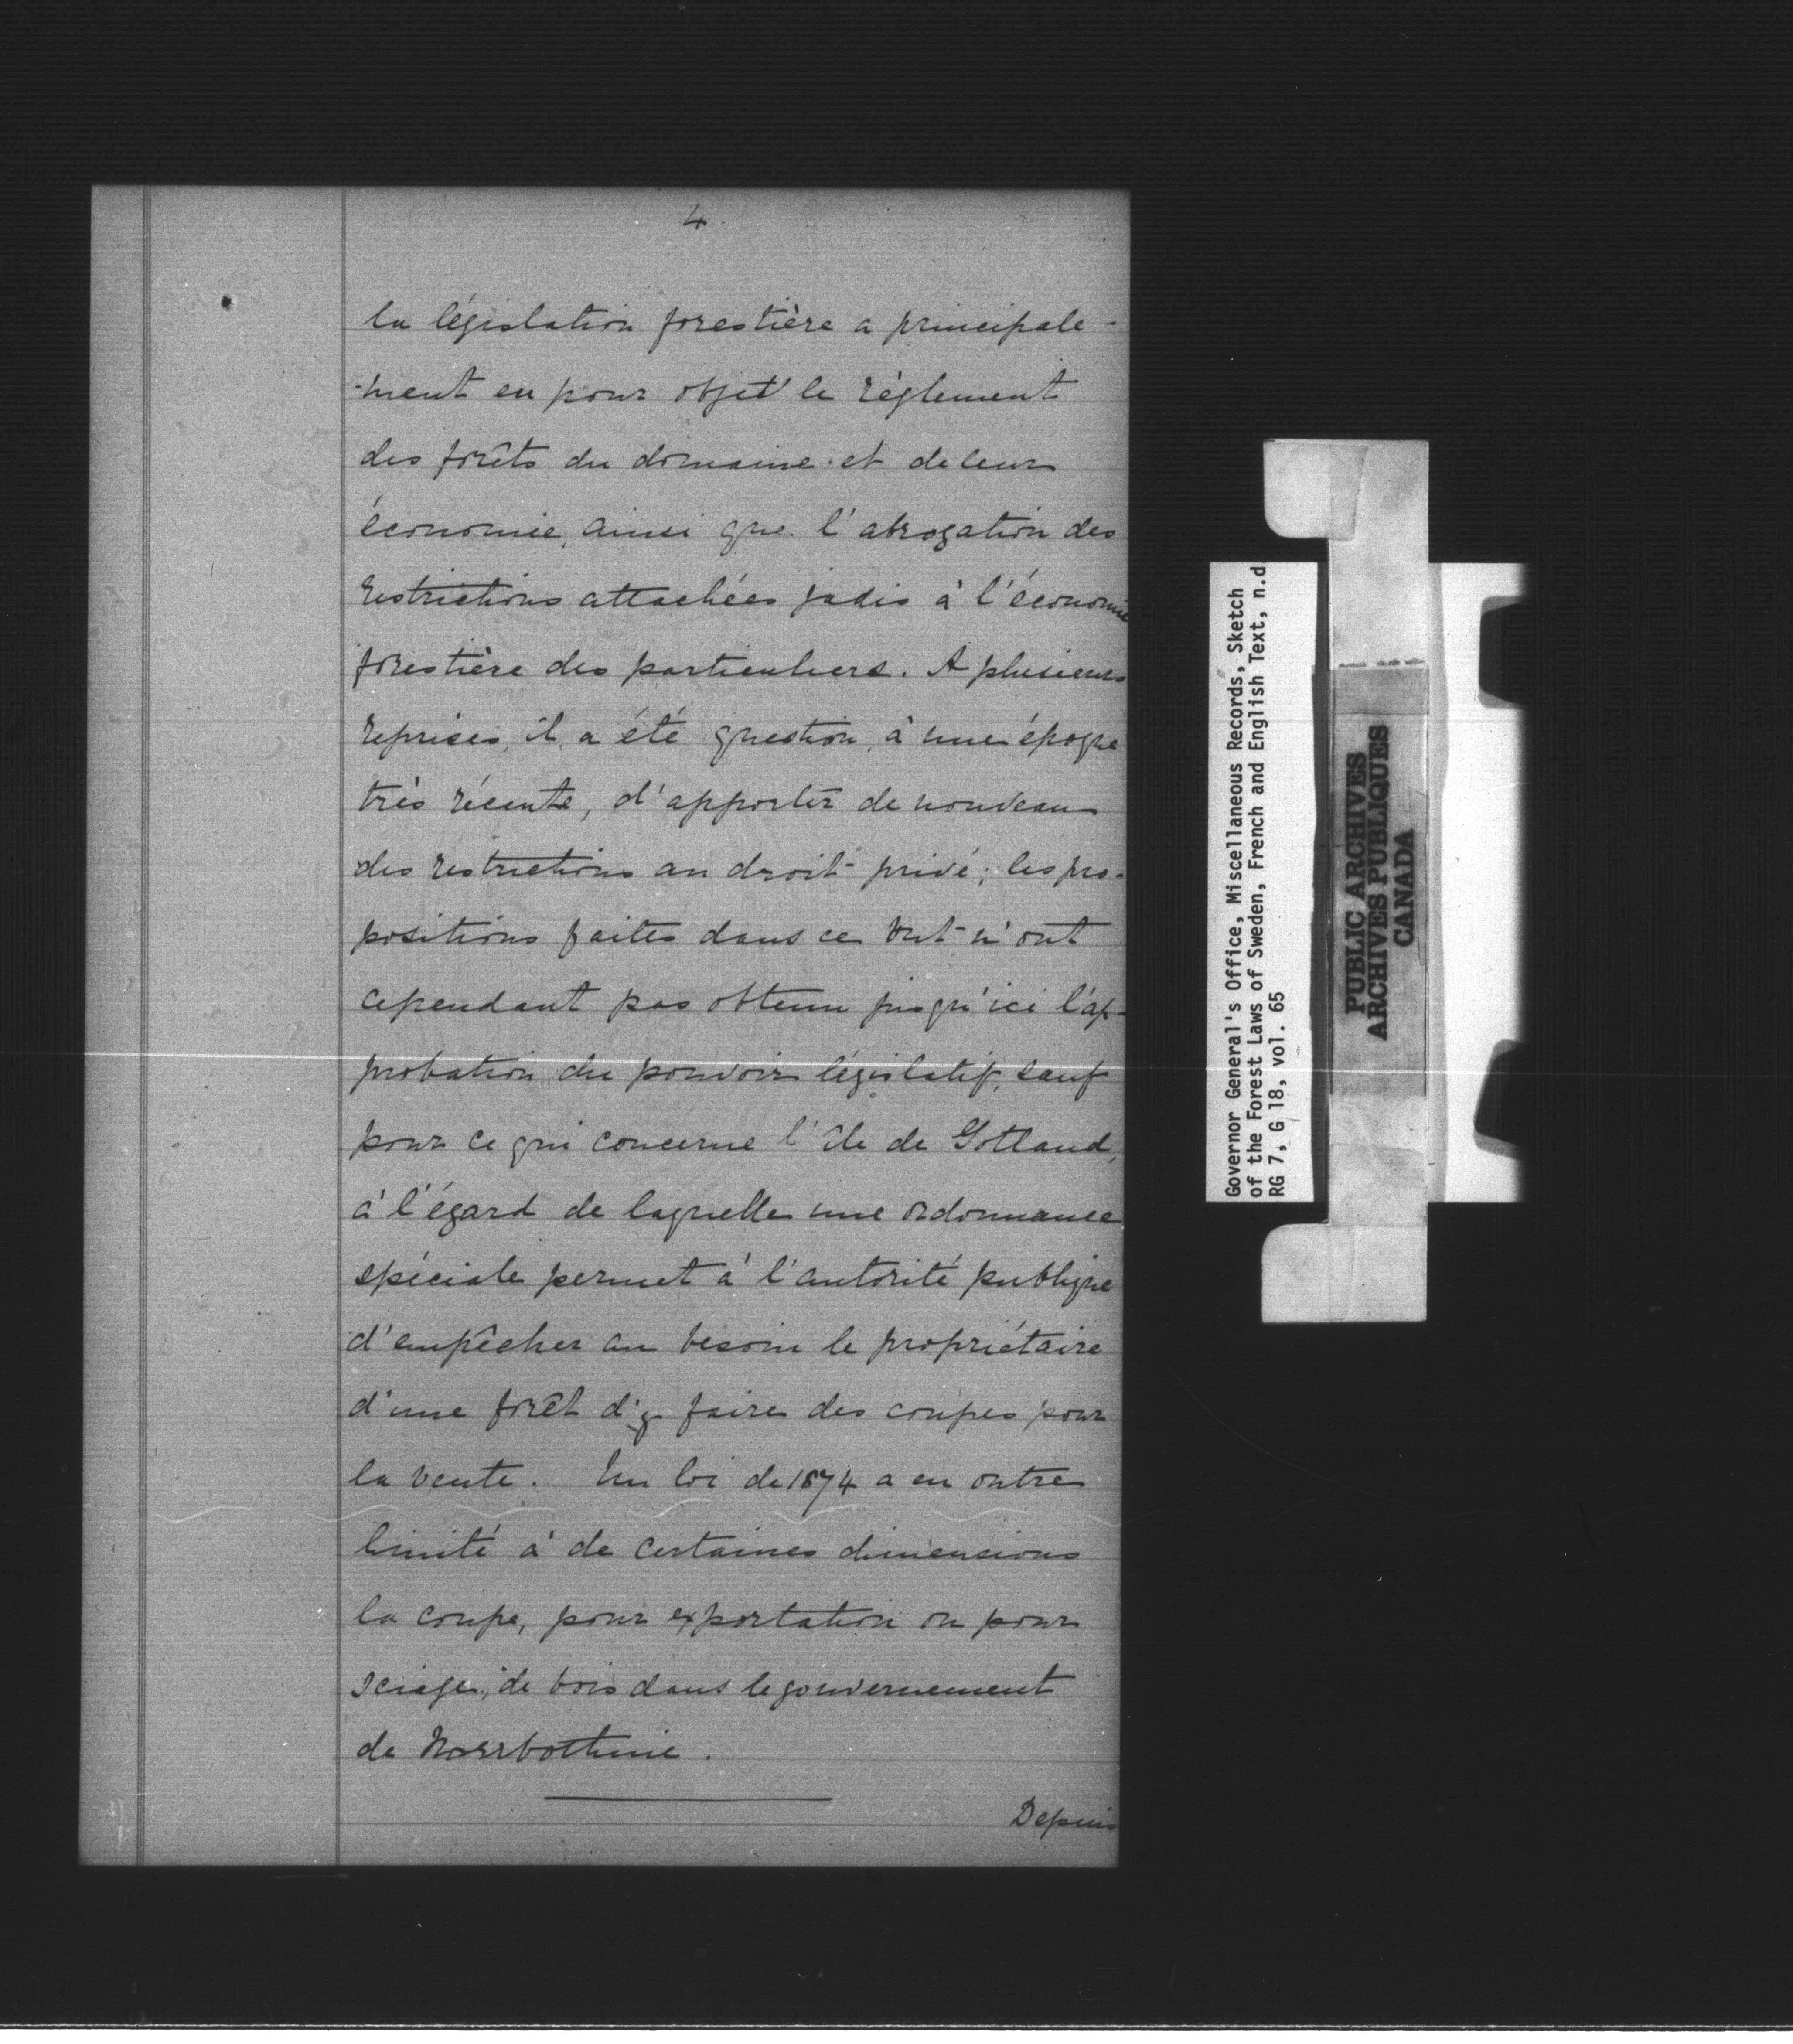 4
la législation forestière a principale-
-ment eu pour objet le règlement
des forêts du domaine et de leur
économie, ainsi que l'abrogation des
restrictions attachées jadis à l'économie
forestière des particuliers. A plusieurs
reprises, il a été question, à une époque
très récente, d'apporter de nouveau
des restrictions au droit privé; les pro-
positions faites dans ce but n'ont
cependant pas obtenu jusqu'ici l'ap-
probation du pouvoir législatif, sauf
pour ce qui concerne l'île de Gotland,
à l'égard de laquelle une ordonnance
spéciale permet à l'autorité publique
d'empêcher au besoin le propriétaire
d'une forêt d'y faire des coupes pour
la vente. Un loi de 1874 a en outre
limité à de certaines dimensions
la coupe, pour exportation ou pour
sciage, de bois dans le gouvernement
de Norrbothnie.
Depuis
Governor General's Office, Miscellaneous Records, Sketch
of the Forest Laws of Sweden, French and English Text, n.d
RG 7, G 18, vol. 65
PUBLIC ARCHIVES
ARCHIVES PUBLIQUES
CANADA